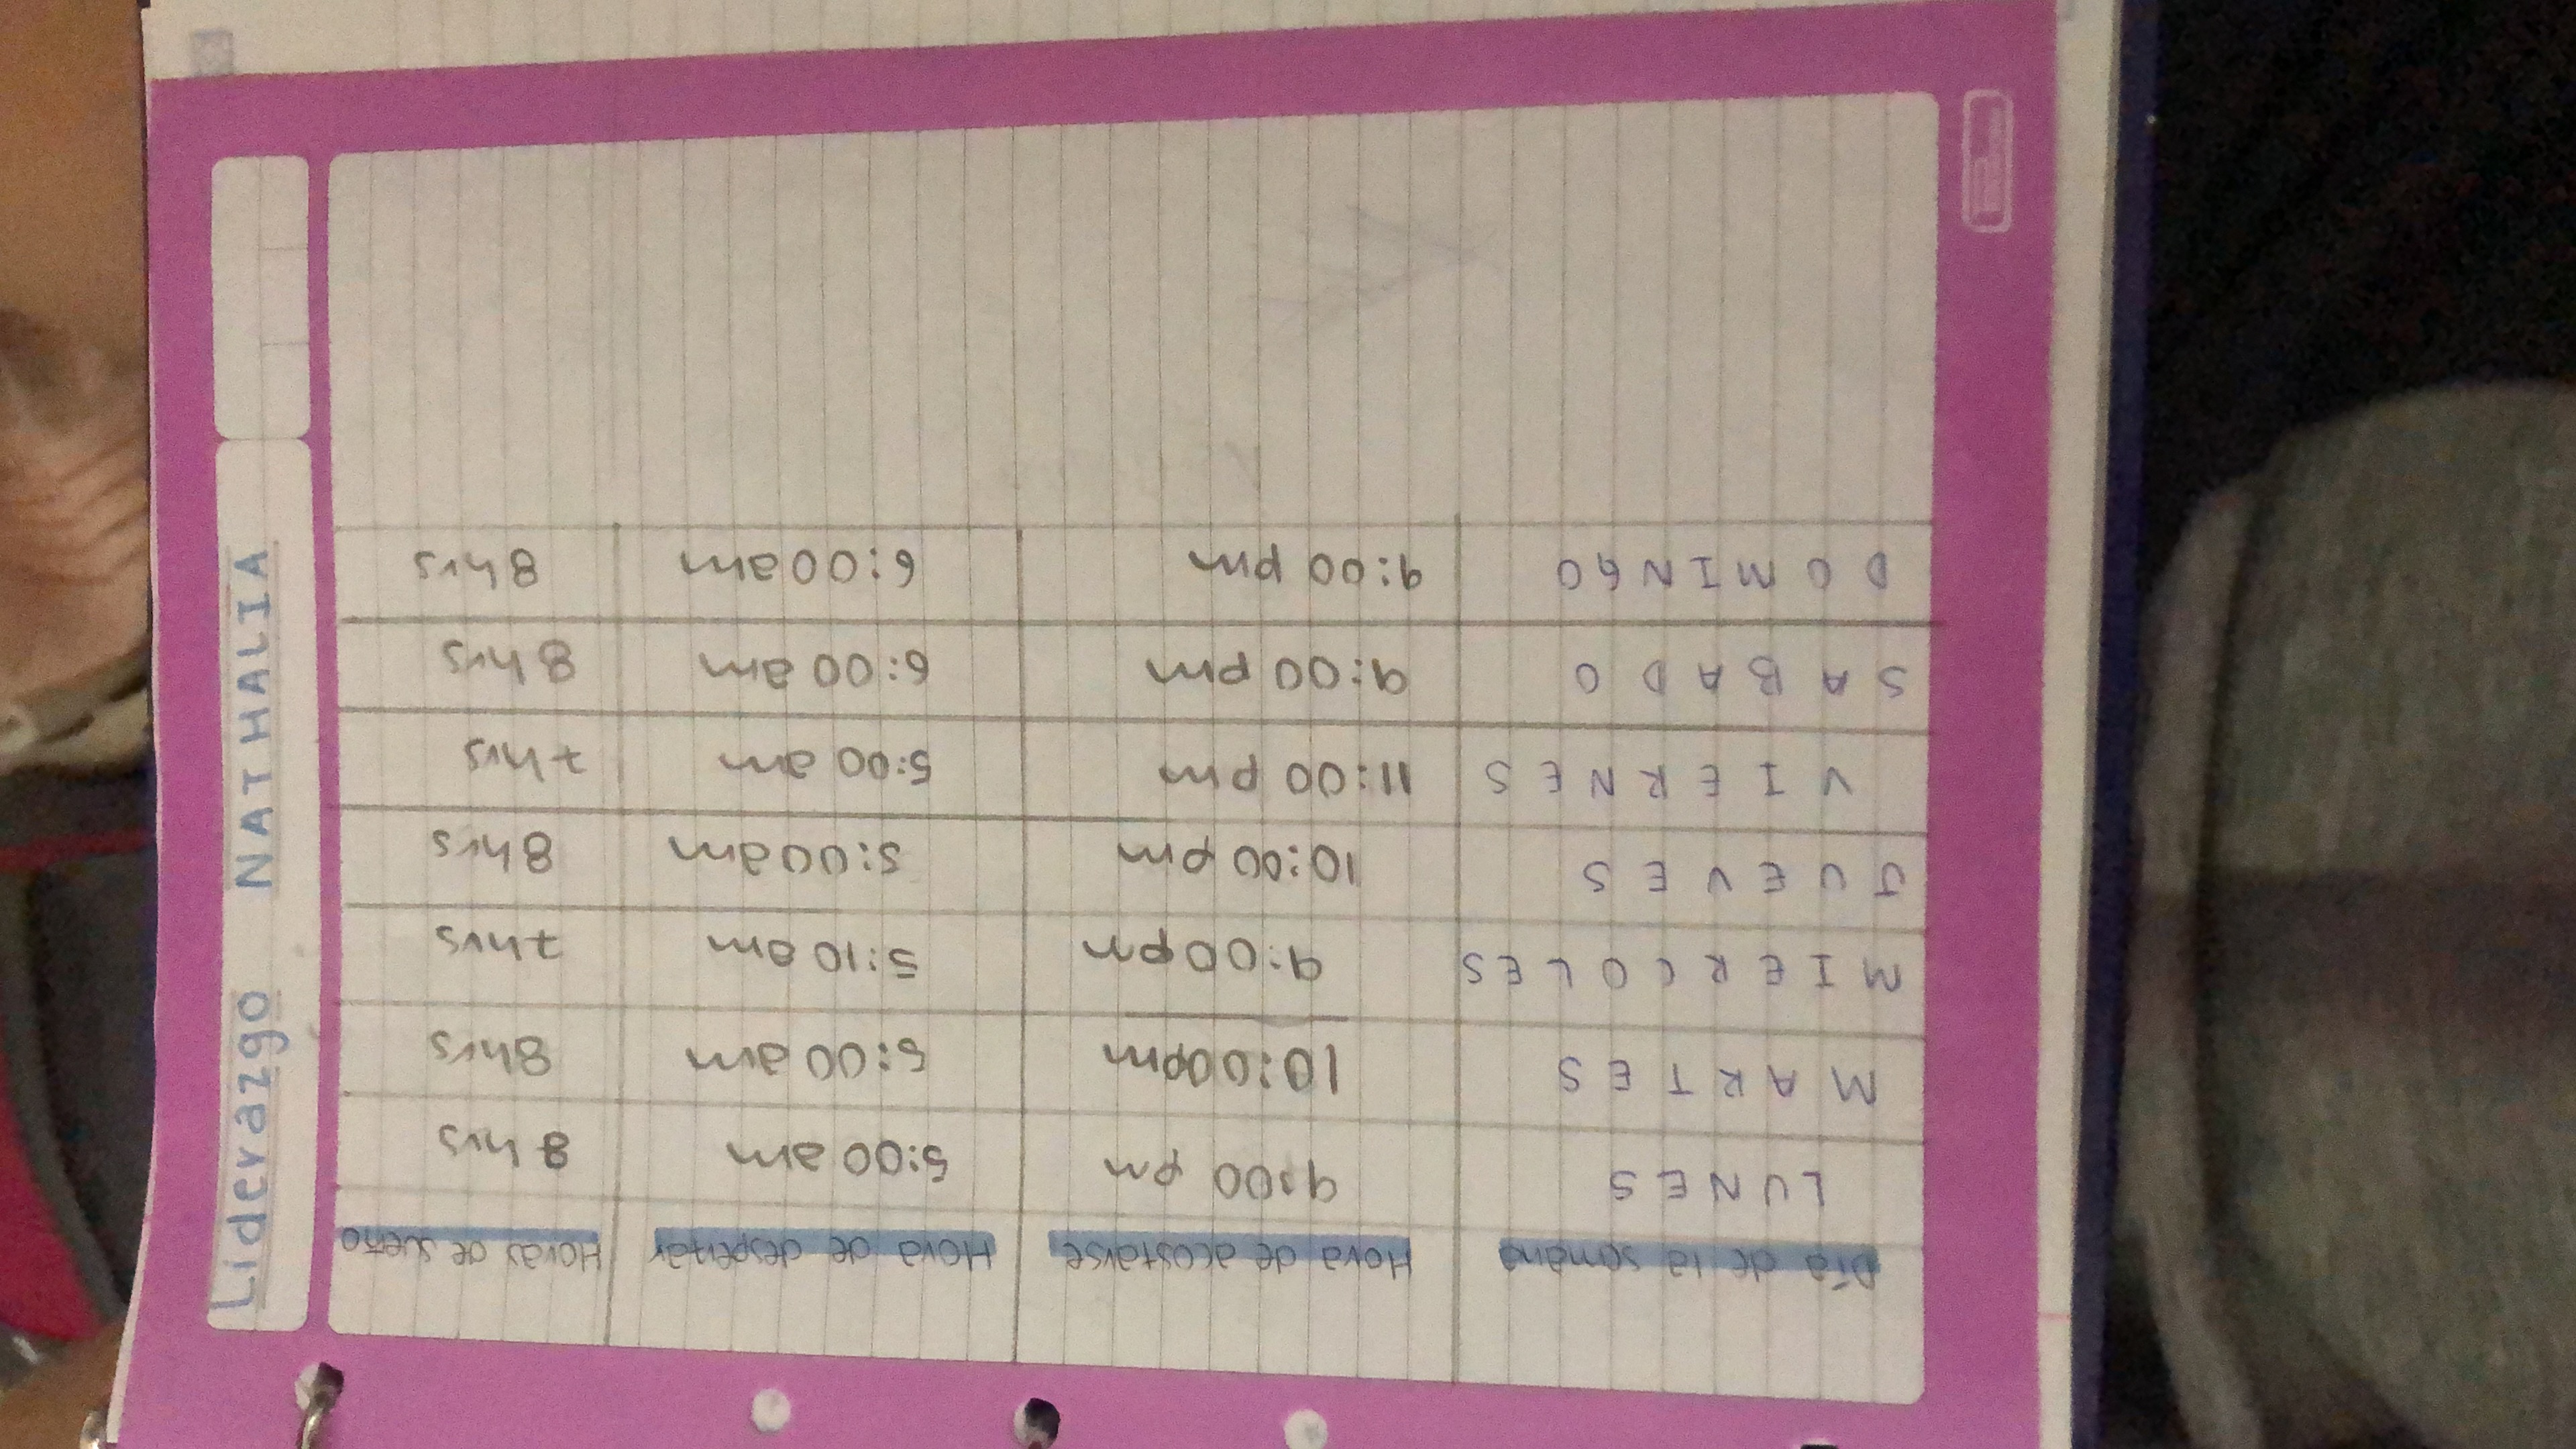 Liderazgo NATHALIA
Día de la semana Hora de acostarse Hora de despertar Horas de sueño
LUNES 9:00 pm 5:00 am 8 hrs
MARTES 10:00pm 5:00 am 8hrs
MIERCOLES 9:00pm 5:10 am 7hrs
JUEVES 10:00 pm 5:00am 8hrs
VIERNES 11:00 pm 5:00 am 7hrs
SABADO 9:00 pm 6:00 am 8 hrs
DOMINGO 9:00 pm 6:00am 8hrs